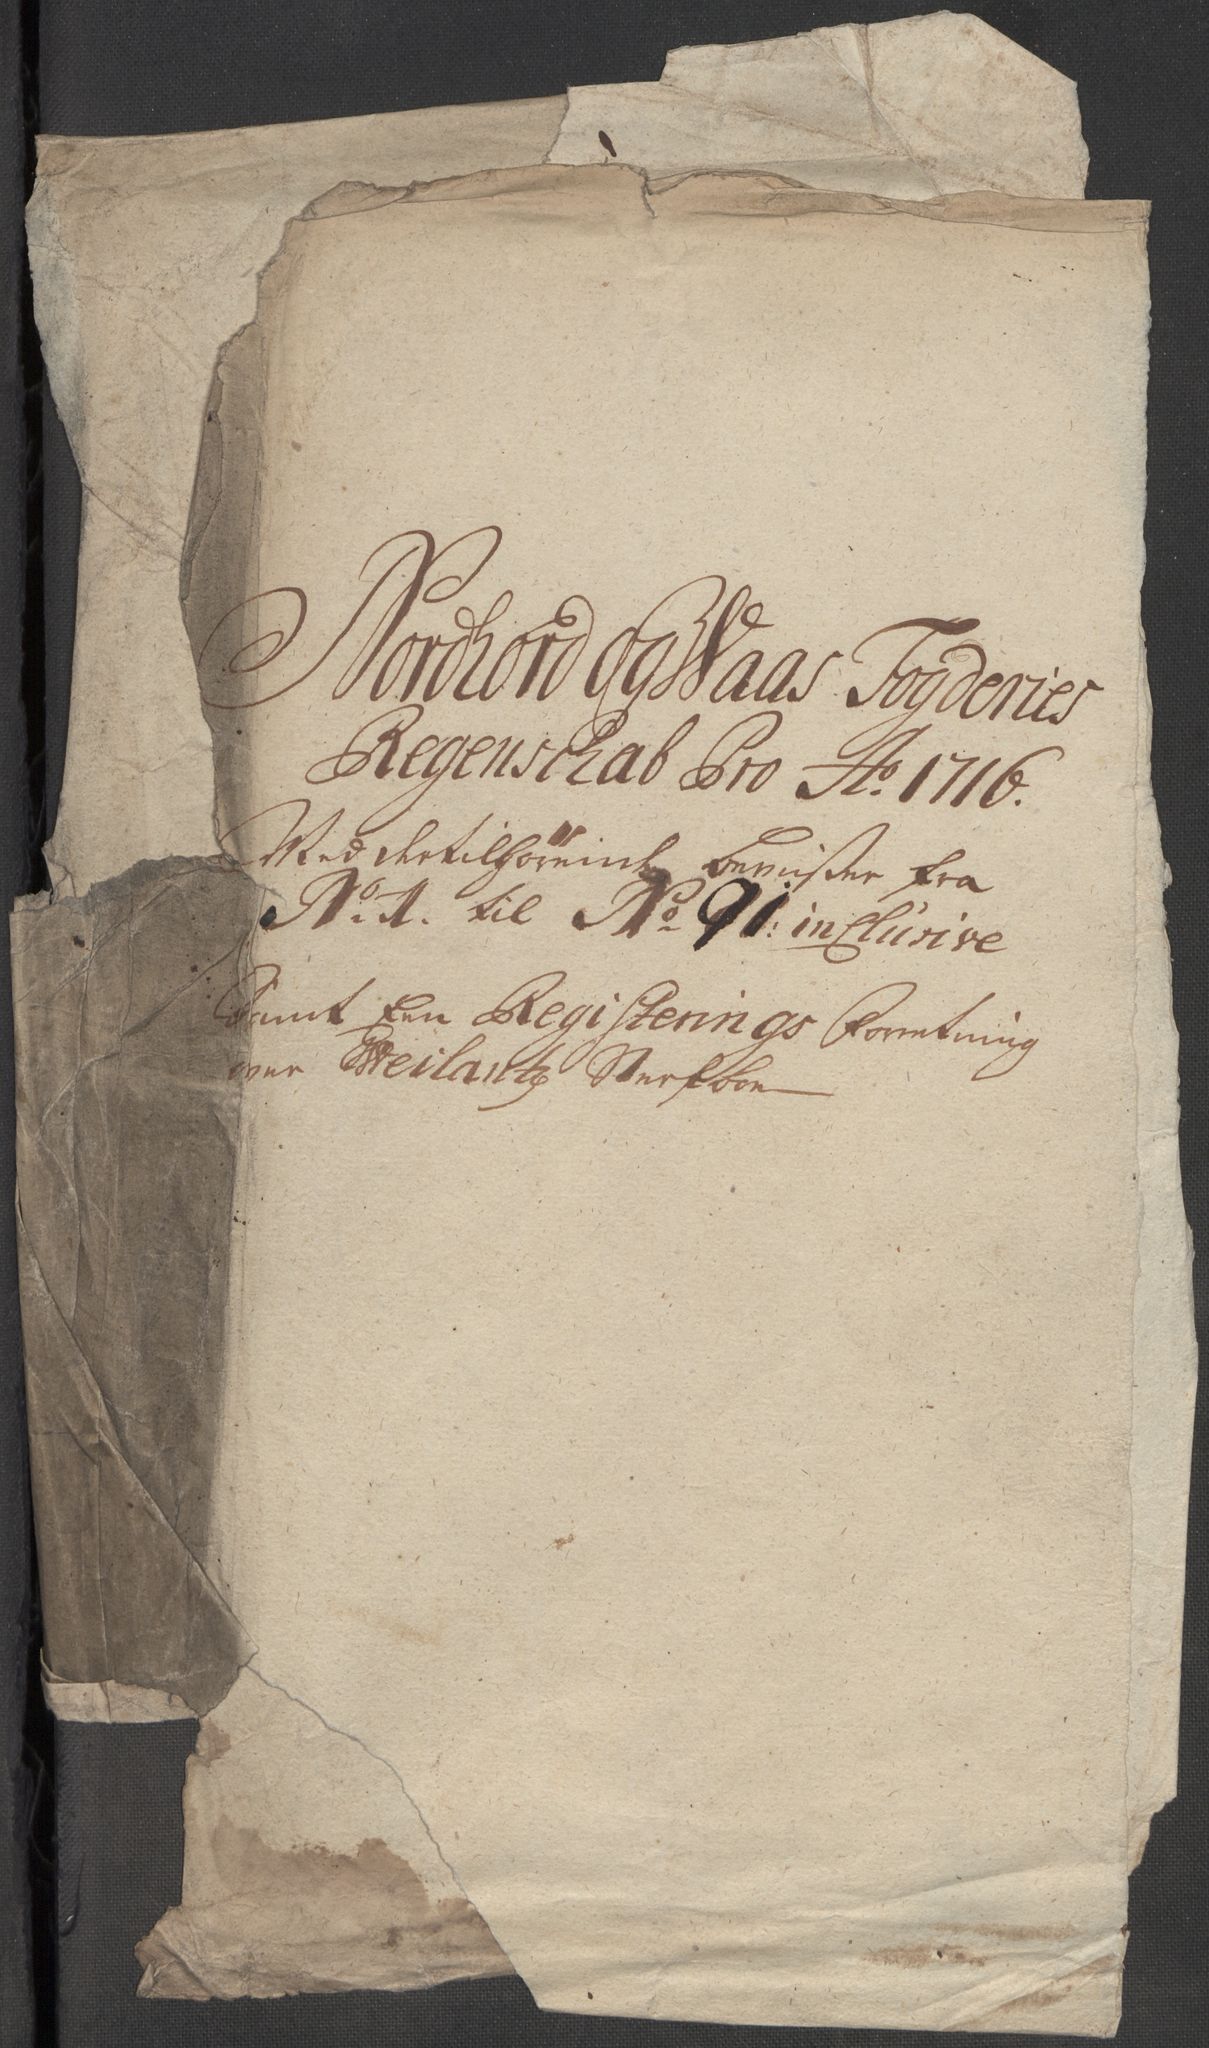 Nordhord og Waas Fogderies
Regenschab Pro Ao. 1716.
Med dertilhörende beviiser fra
No. 1. til No 91: inclusive
Samt een Registerings Forretning
over Weilantz Sterfboe